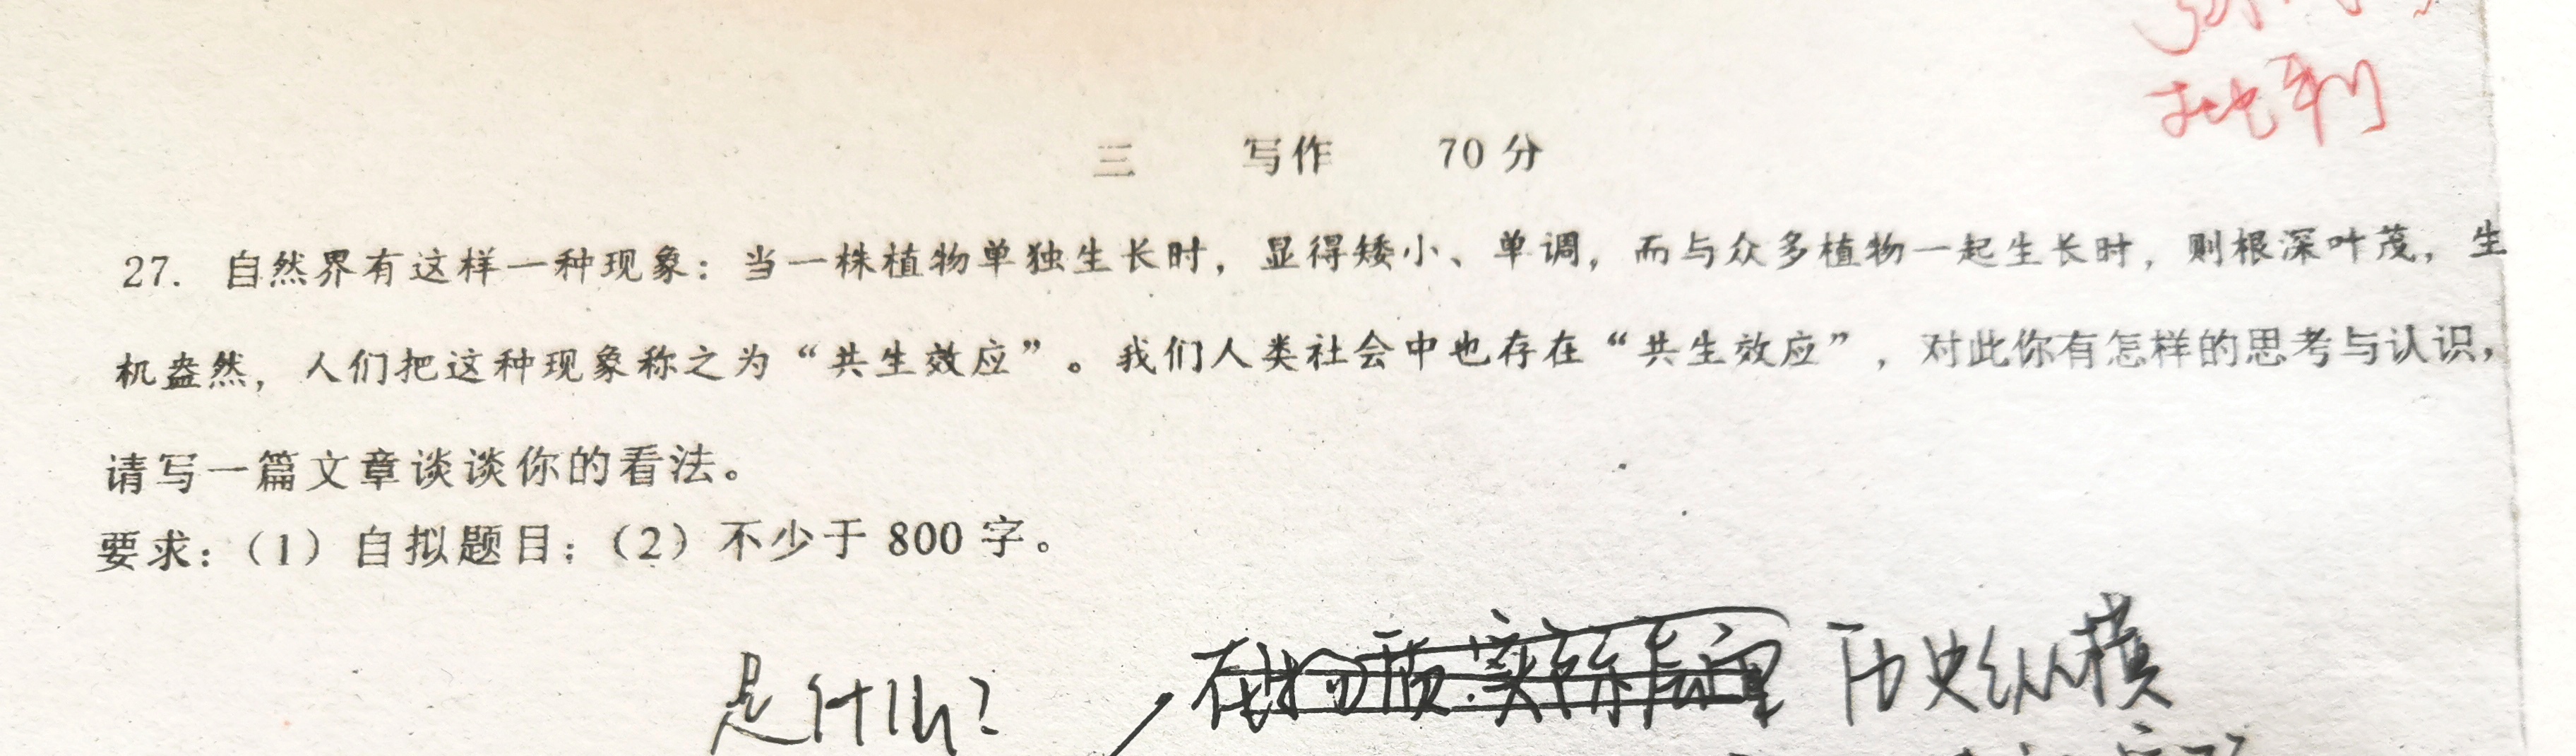 批判
三 写作 70 分
27. 自然界有这样一种现象：当一株植物单独生长时，显得矮小、单调，而与众多植物一起生长时，则根深叶茂，生
机盎然，人们把这种现象称之为“共生效应”。我们人类社会中也存在“共生效应”，对此你有怎样的思考与认识，
请写一篇文章谈谈你的看法。
要求：（1）自拟题目；（2）不少于 800 字。
是什么？
历史纵横